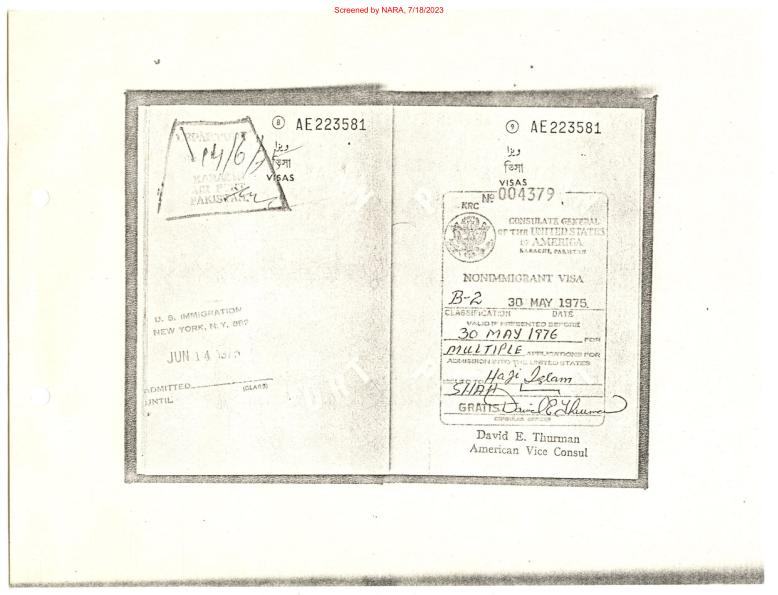 Screened by NARA, 7/18/2023
8 AE223581
ویزا
ভিসা
VISAS
KARACHI
PAKISTAN
U. S. IMMIGRATION
NEW YORK, N.Y.
JUN 14 1975
ADMITTED
(CLASS)
UNTIL
9 AE223581
ویزا
ভিসা
VISAS
KRC № 004379
CONSULATE GENERAL
OF THE UNITED STATES
OF AMERICA
KARACHI, PAKISTAN
NONIMMIGRANT VISA
B-2 30 MAY 1975
CLASSIFICATION DATE
VALID IF PRESENTED BEFORE
30 MAY 1976 FOR
MULTIPLE APPLICATIONS FOR
ADMISSION INTO THE UNITED STATES
ISSUED TO Haji Islam
SHAH
GRATIS David E Thurman
CONSULAR OFFICER
David E. Thurman
American Vice Consul